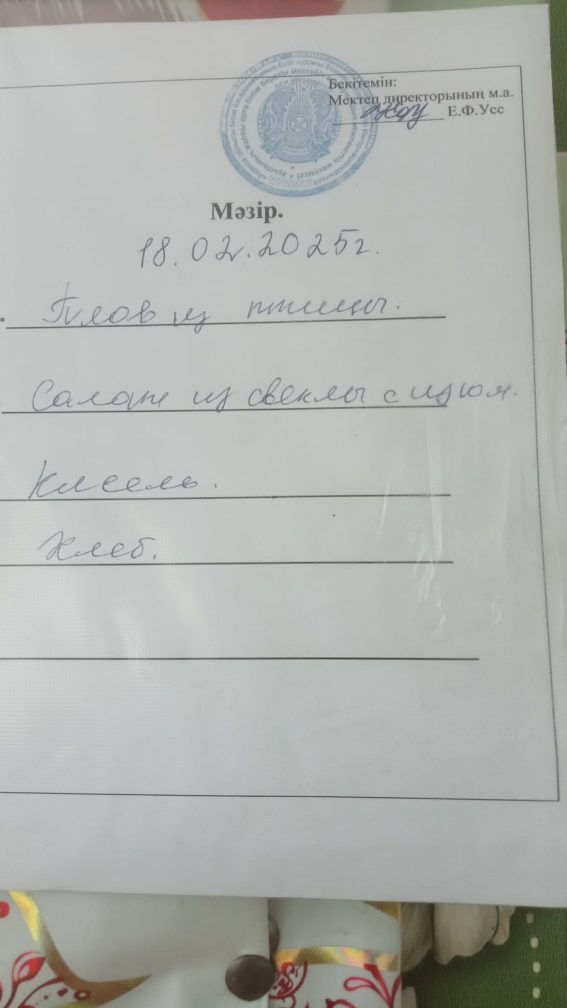 Бекітемін:
Мектеп директорының м.а.
Е.Ф.Усс
Мәзір.
18.02.2025г.
Плов из птицы.
Салат из свеклы с изюм.
Кисель.
Хлеб.